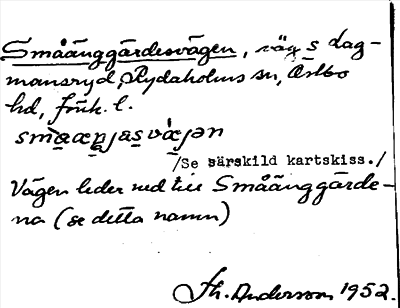 Småänggärdesvägen, väg s Dag-
mansryd, Rydaholms sn, Östbo
hd, Jönk. l.
smaaæŋjasvæjən
/Se särskild kartskiss./
Vägen leder ned till Småänggärde-
na (se detta namn)
Th. Anderson 1952.